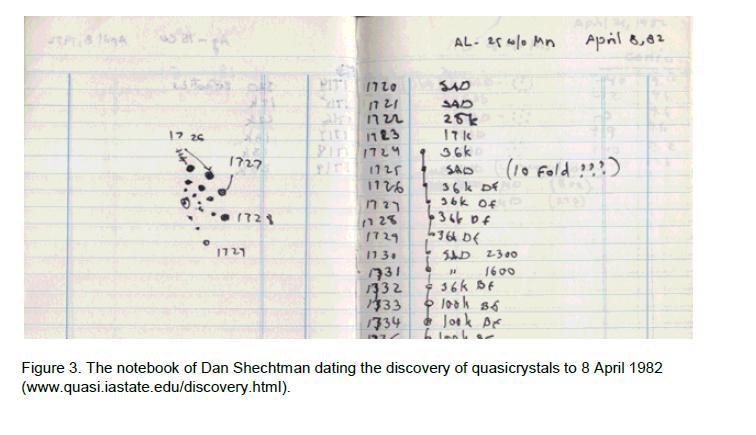 AL- 25 w/o Mn April 8, 82
1720 SAD
1721 SAD
1722 25k
1723 17k
1724 36k
1725 SAD (10 Fold ???)
1726 36k DF
1727 36k DF
1728 36k DF
1729 36k DF
1730 SAD 2300
1731 " 1600
1732 36k BF
1733 100k BF
1734 100k DF
1726
1727
1728
1729
Figure 3. The notebook of Dan Shechtman dating the discovery of quasicrystals to 8 April 1982
(www.quasi.iastate.edu/discovery.html).